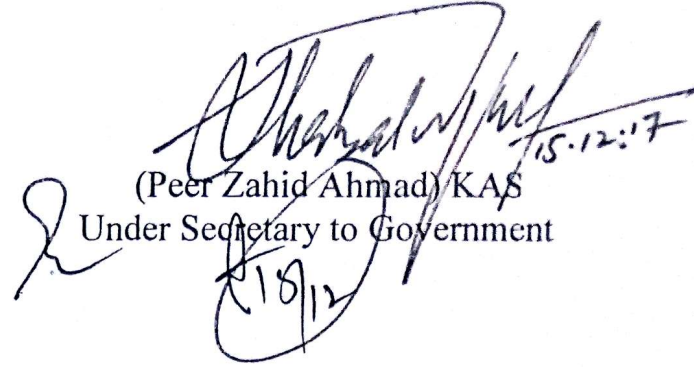 15.12.17
(Peer Zahid Ahmad) KAS
Under Secretary to Government
18/12